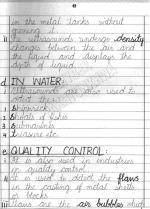 in the metal tanks without
opening it.
ii The ultrasounds undergo density
changes between the air and
the liquid and displays the
depth of liquid.
d IN WATER:
i Ultrasounds are also used to
detect the:
1 Shipwreck
2 Shoals of fishes
3 Submarines
4 Treasure etc.
e QUALITY CONTROL:
i It is also used in industries
in quality control.
ii It is used to detect the flaws
in the casting of metal shells
in blocks
iii Flaws are the air bubbles which